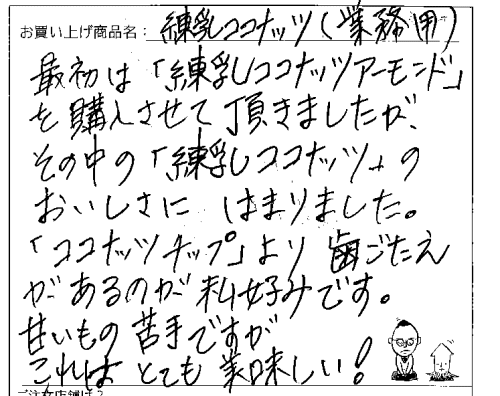 お買い上げ商品名：練乳ココナッツ(業務用)
最初は「練乳ココナッツアーモンド」
を購入させて頂きましたが、
その中の「練乳ココナッツ」の
おいしさに はまりました。
「ココナッツチップ」より 歯ごたえ
があるのが 私好みです。
甘いもの 苦手ですが
これは とても 美味しい!
ご注文店舗は?